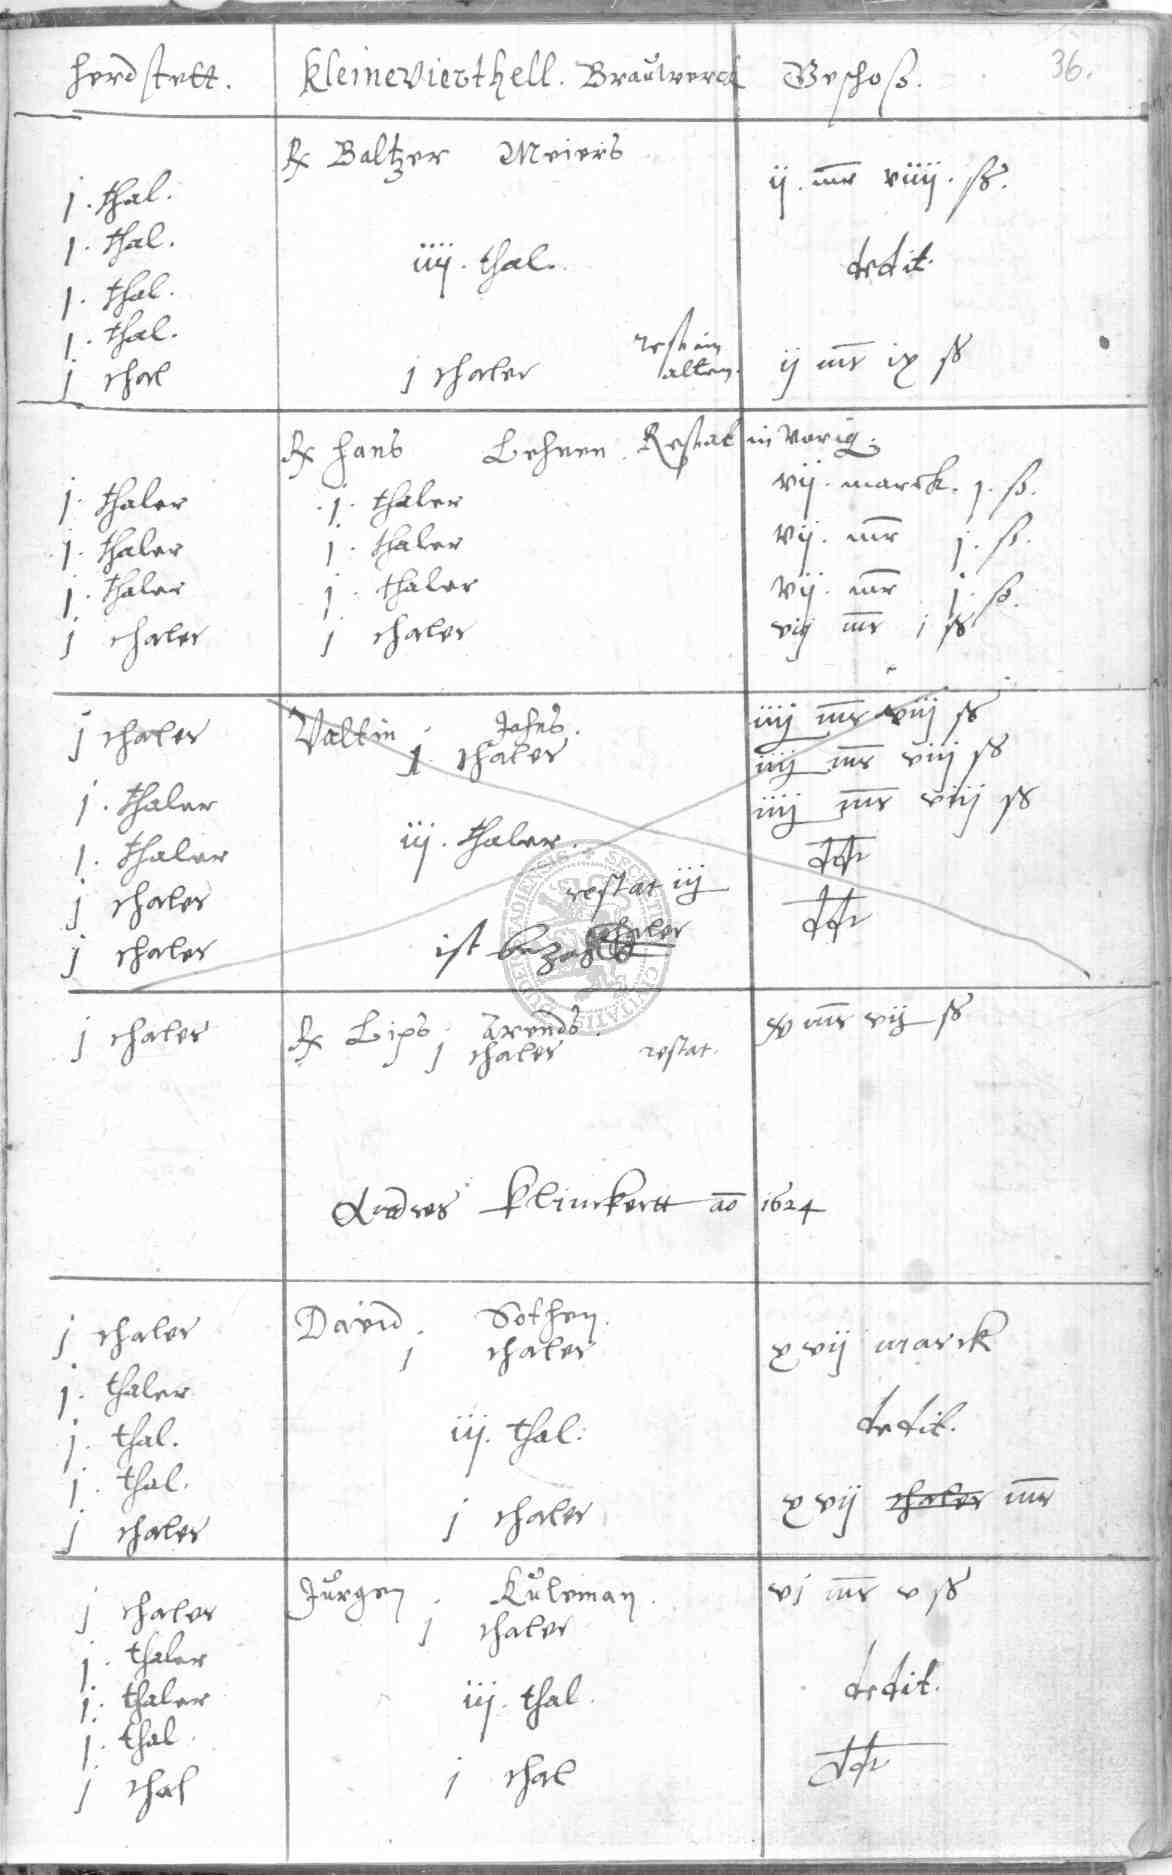 herdstett. Kleinevierthell. Brauwerck Geschoß. 36.
Rx Baltzer Meiers
j. thal. ij. mr viiij. ß.
j. thal.
iiij. thal. dedit.
j. thal.
j. thal.
rest im
j thal j thaler alten. ij mr ix ß
Rx Hans Lehnen. Restat in vorig.
j. thaler j. thaler vij. marck. j. ß.
j. thaler j. thaler vij. mr j. ß.
j. thaler j. thaler vij. mr j. ß.
j thaler j thaler vij mr i ß
j thaler Valtin Jahns. iiij mr viij ß
j thaler iiij mr viij ß
j. thaler iiij mr viij ß
iij. thaler.
j. thaler ddt
j thaler restat iij ddt
thaler
j thaler ist bezahlt
j thaler Rx Lips Arends. xv mr vij ß
j thaler restat.
Andres Klinckertt ao 1624
j thaler David Sothen.
j thaler xvij marck
j. thaler
j. thal. iij. thal. dedit.
j. thal.
j thaler j thaler xvij thaler mr
j thaler Jurgen Kuleman. vj mr v ß
j thaler
j. thaler
j. thaler iij. thal. dedit.
j. thal.
j thal j thal ddt
SECRETUM CIVITATIS